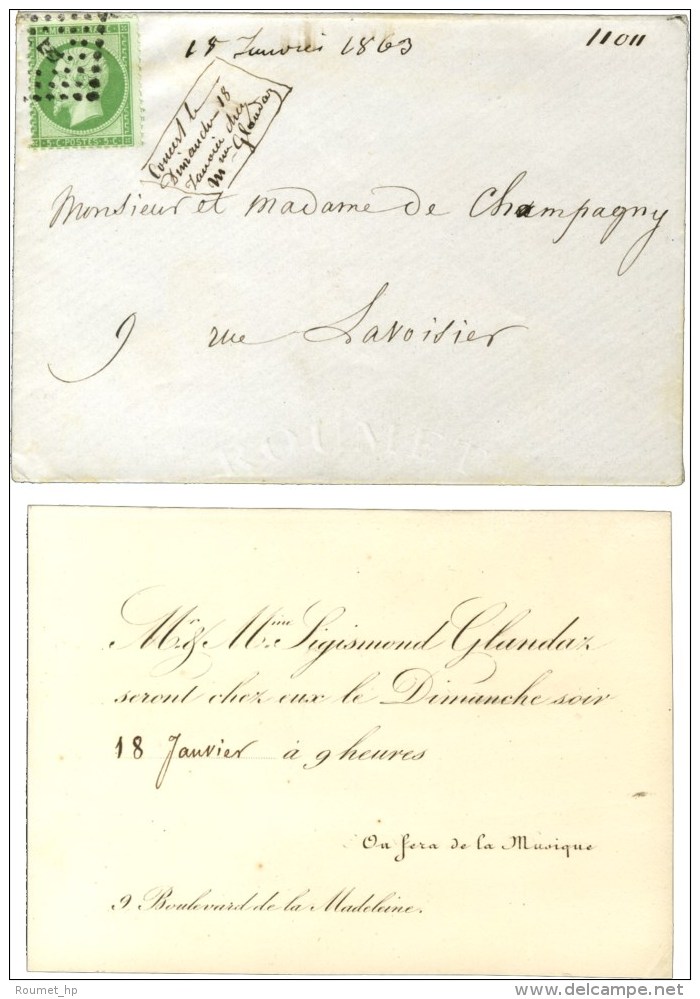 18 Janvier 1863
11011
Concert le
Dimanche 18
Janvier chez
Mme Glandaz
5 C POSTES 5 C
Monsieur et Madame de Champagny
9 rue Lavoisier
ROUMET
Mr. & Mme. Sigismond Glandaz
seront chez eux le Dimanche soir
18 Janvier à 9 heures
On fera de la Musique
9 Boulevard de la Madeleine.
Roumet_hp
delcampe.net